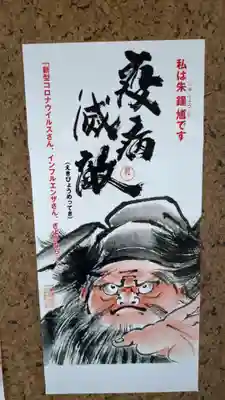 私は朱 鍾馗です
疫病
滅敵
(えきびょうめってき)
「新型コロナウイルスさん、インフルエンザさん、